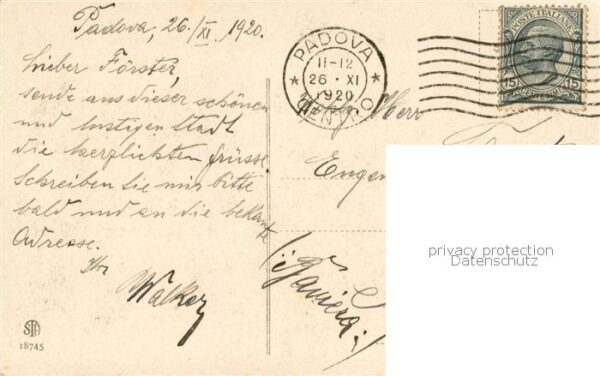 Padova, 26./XI. 1920.
Lieber Förster,
sende aus dieser schönen
und lustigen Stadt
die herzlichsten Grüsse
Schreiben Sie mir bitte
bald und an die bekante
Adresse.
Ihr
Walker
STA
18745
PADOVA
11-12
26 · XI
1920
CENTRO
POSTE ITALIANE
15 15
Herr
Eugen
(Baviera)
privacy protection
Datenschutz